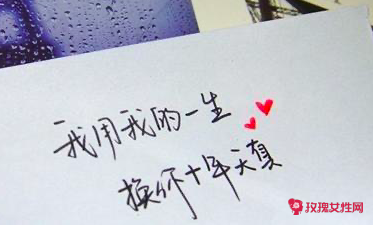 我用我的一生
换你十年天真
玫瑰女性网